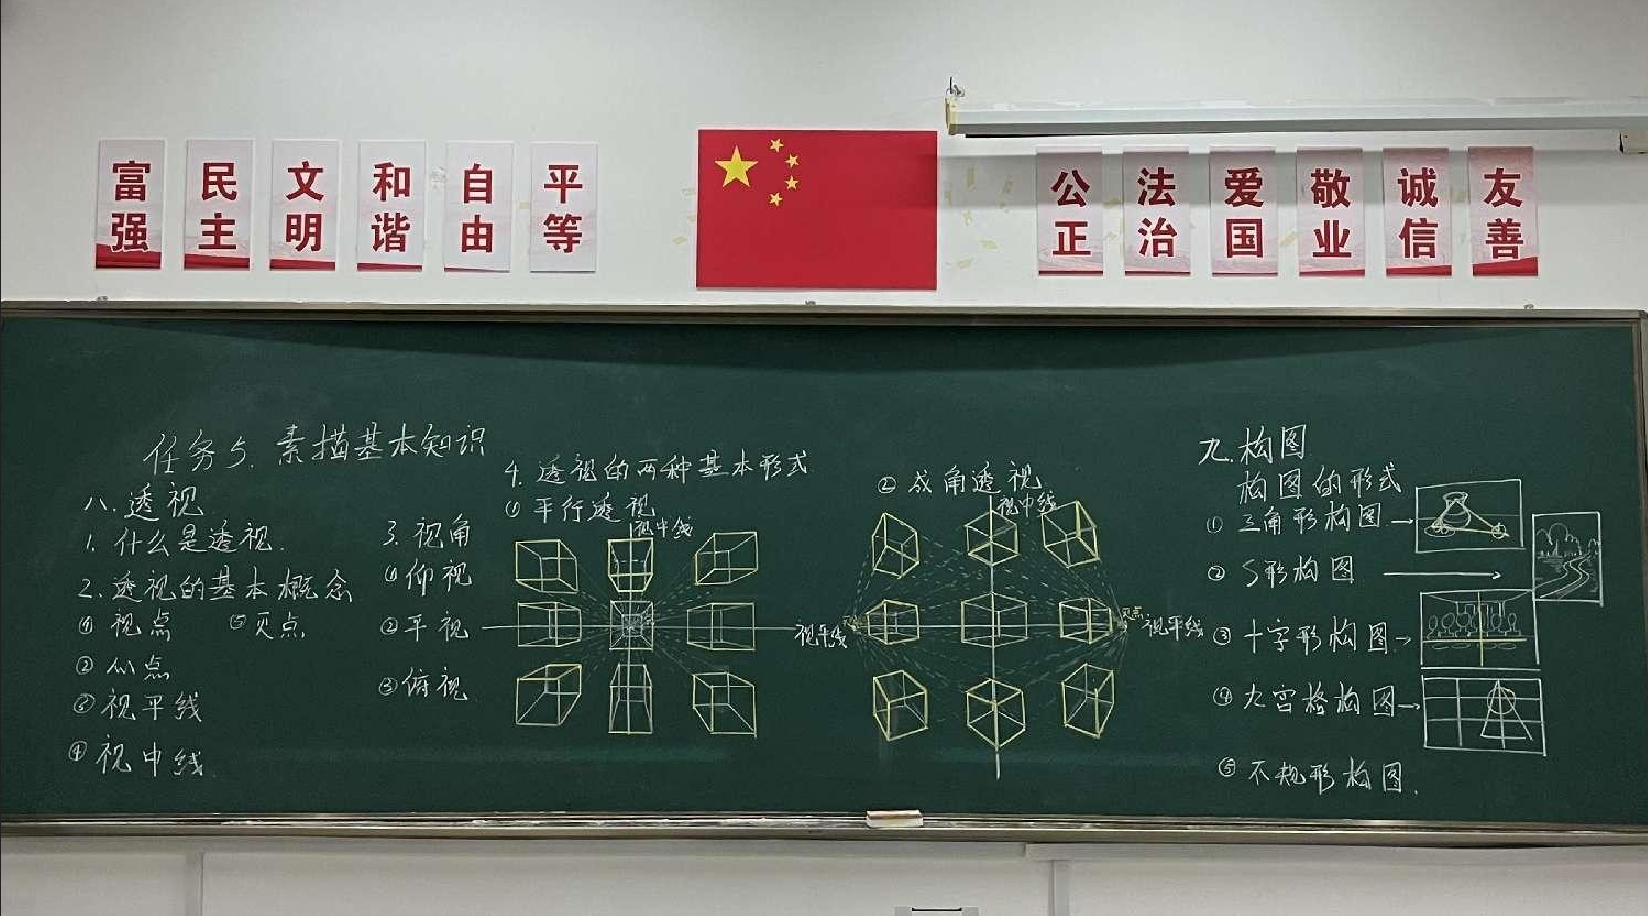 富强 民主 文明 和谐 自由 平等
公正 法治 爱国 敬业 诚信 友善
任务5. 素描基本知识
八.透视
1. 什么是透视.
2. 透视的基本概念
① 视点 ⑤灭点
② 心点
③ 视平线
④ 视中线
3. 视角
①仰视
②平视
③俯视
4. 透视的两种基本形式
① 平行透视
视中线
视平线
② 成角透视
视中线
灭点
视平线
九.构图
构图的形式
① 三角形构图→
② S形构图→
③ 十字形构图→
④ 九宫格构图→
⑤ 不规形构图.